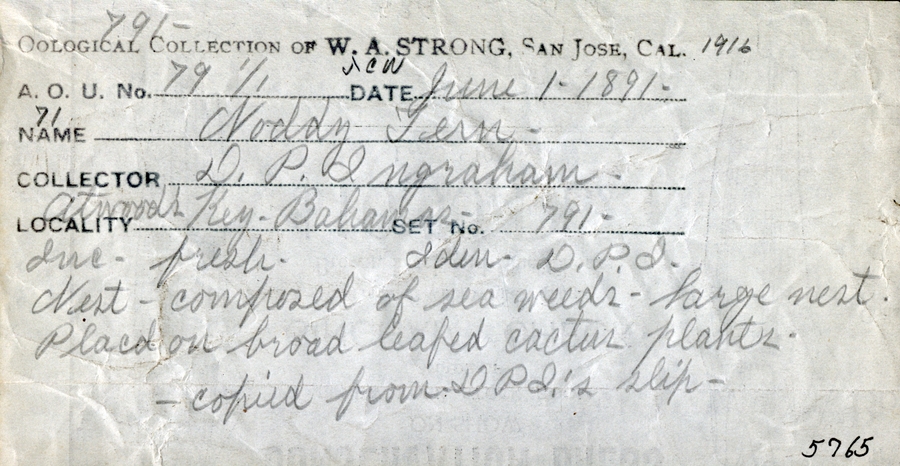 791-
OOLOGICAL COLLECTION OF W. A. STRONG, SAN JOSE, CAL. 1916
A. O. U. No. 79 1/1 ACW DATE June 1-1891-
71
NAME Noddy Tern-
COLLECTOR D. P. Ingraham-
LOCALITY Atwoods Key-Bahamas- SET No. 791-
Inc- fresh. Iden- D.P.I.
Nest-composed of sea weeds-large nest.
Placd on broad leafed cactus plants.
-copied from D P I.'s slip-
5765